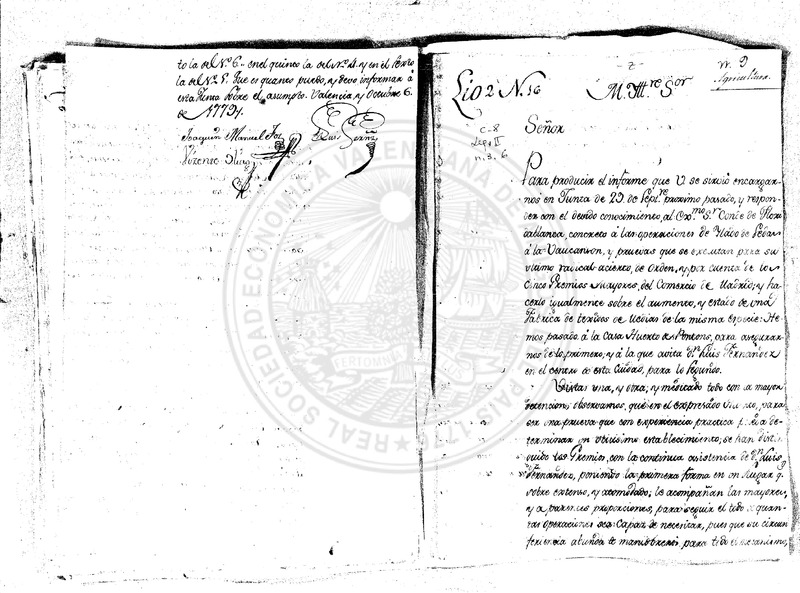 to la del Nº. 6. en el quinto la del nº. 4. y en el Sexto
la del Nº. 5. Que es quanto puedo, y devo informar á
esta Junta sobre el asumpto. Valencia, y Octubre 6.
de 1779.
Joaquin Manuel Fos
Luis Fernz
Vicente
nº. 9
Agricultura.
Lio 2º N. 16
M. Iltre Sor
C-8
Leg. II
n. 3. 6
Señor
Para producir el informe que V se sirvió encargar
nos en Junta de 29. de Septre. proximo pasado, y respon
der con el devido conocimiento, al Exmo. Sr. Conde de Flori
dablanca, concreto á las operaciones de Ylado de Sedas
á la Vaucanson, y pruevas que se executan para su
ultimo radical acierto, de Orden, y por cuenta de los
Cinco Gremios mayores, del Comercio de Madrid; y ha
cerlo igualmente sobre el aumento, y estado de una
Fabrica de texidos de Medias de la misma especie: He
mos pasado á la Casa Huerto de para asegurar
nos de lo primero; y á la que avita Dn. Luis Fernandez
en el centro de esta Ciudad, para lo segundo.
Vistas una, y otra; y meditado todo con la mayor
detencion; observamos, que en el expresado para
ser una prueva que con experiencia practica de
terminar un utilisimo establecimiento; se han
guido los Gremios, con la continua asistencia de Dn. Luis
Fernandez, poniendo la primera forma en un Lugar q.
sobre extenso, y acomodado; le acompañan las mayores,
y proporciones, para seguir el todo quan
tas operaciones sea capaz de necesitar, pues que su circun
ferencia abunda de para todo el mecanismo,
REAL SOCIEDAD ECONOMICA VALENCIANA DE AMIGOS DEL PAIS 1776